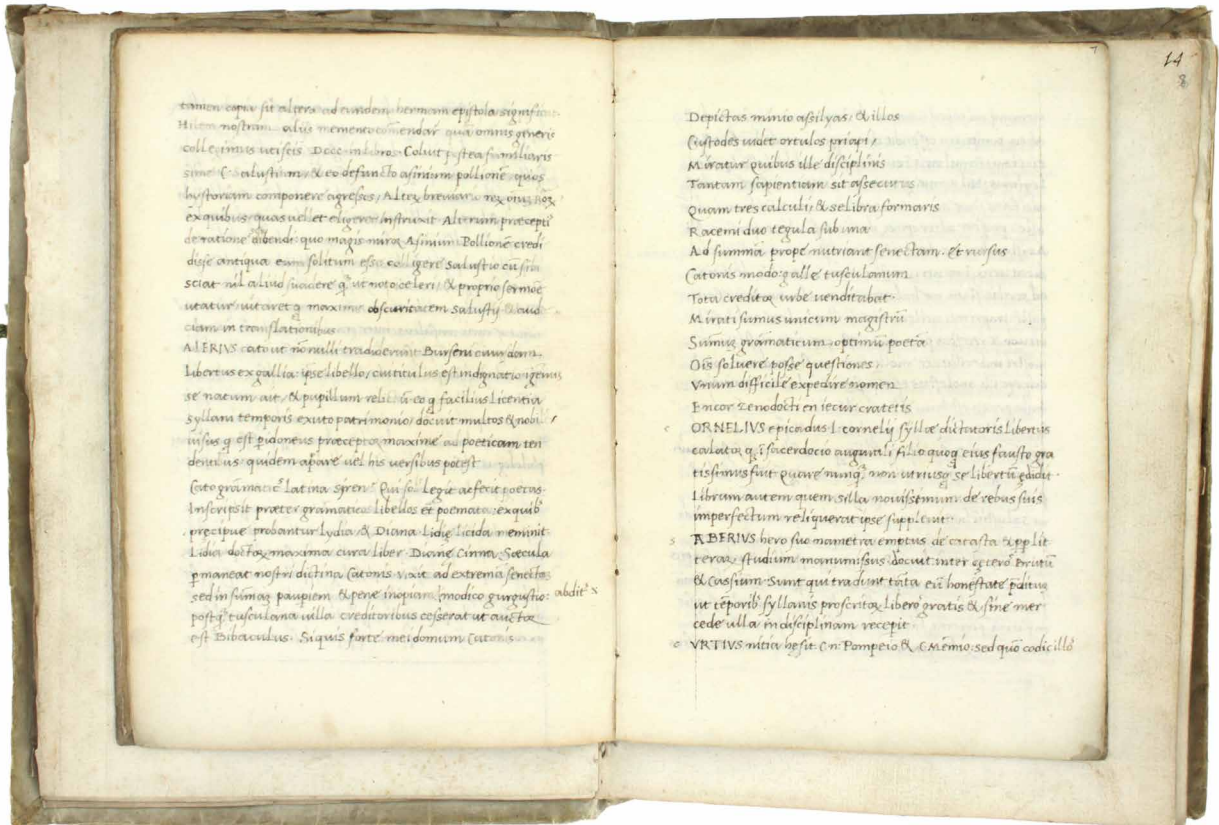 tamen copia sit altera ad eundem hermam epistola significat
Hilea nostram alijs memento comendar quā omnis generis
collegimus ut scis Dccc in libros. Coluit postea familiaris
sime C. Salustium, & eo defuncto asinium pollionē, quos
hystoriam componere agressos, Alterꝝ breuiario reꝝ oīuꝫ Roꝫ
ex quibus quas uellet eligere instruxit Alterum præcepti
de ratione scibendi: quo magis miroꝛ Asinium Pollionē credi
disse antiqua eum solitum esse colligere Salustio cū sibi
sciat nil aliud suadere q̄ ut noto celeri, & proprio sermōe
utatur uitaretq maxime obscuritatem Salustij & aud
ciam in translationibus
ALERIVS cato ut nōnulli tradiderunt Burseni cuiusdam
libertus ex gallia: ipse libello, cui titulus est indignatio igenuꝫ
se natum ait, & pupillum relictū eo q facilius licentia
syllani temporis exuto patrimonio, docuit multos & nobil
uisus q est p̱idoneus præceptoꝛ maxime ad poeticam ten
dentibus quidem apare uel his versibus potest
Cato grāmaticꝰ latina syrenꝰ Qui solꝰ legit ac ferit poetas
Inscripsit præter gramaticos libellos et poemata: exquibꝰ
precipue probantur lydia, & Diana Lidię licida meminit
Lidia doctoꝝ maxima cura liber Diane Cinna Sæcula
p̱maneat nostri dictina Catonis vixit ad extremā senectaꝫ
sed in sūmaꝫ paupiem & pene inopiam modico gurgustio: abditꝰ x
postq̄ tusculana uilla creditoribus cesserat ut auctoꝛ
est Bibaculus. Siquis forte mei domum Catonis
7
14
8
Depictas minio assilyas, & illos
Custodes uidet ortulos priapi,
Miratur quibus ille disciplinis
Tantam sapientiam sit assecutus
Quam tres calculi, & selibra formaris
Racemi duo tegula sub una
Ad summā prope nutriant senectam. Et rursus
Catonis modo: galle tusculanum
Tota creditoꝛ urbe uenditabat
Mirati sumus unicum magistrū
Sūmuꝫ grāmaticum, optimū poetā
Oīs soluere posse questiones,
Vnum difficile expedire nomen
Encor zenodocti en iecur cratetis
c ORNELIVS epicadus. l. cornelij syllæ dictatoris libertus
calatoꝛ q̄ ī sacerdocio augurali filio quoq eius fausto gra
tissimus fuit quare nunq̄ non utriusq se libertū ędidit
librum autem quem silla nouissimum de rebus suis
imperfectum reliquerat ipse suppleuit
s TABERIVS hero suo nametra emptus de catasta & pp̱ lit
teraꝝ studium manumissus docuit inter ceterosꝰ brutū
& Cassium. Sunt qui tradunt tāta eū honestate p̱dituꝫ
ut tēporibꝰ syllanis proscritoꝝ liberos gratis & sine mer
cede ulla in disciplinam recepit
c VRTIVS nitia hesit. Cn: Pompeio & C Mēmio: sed quō codicillos